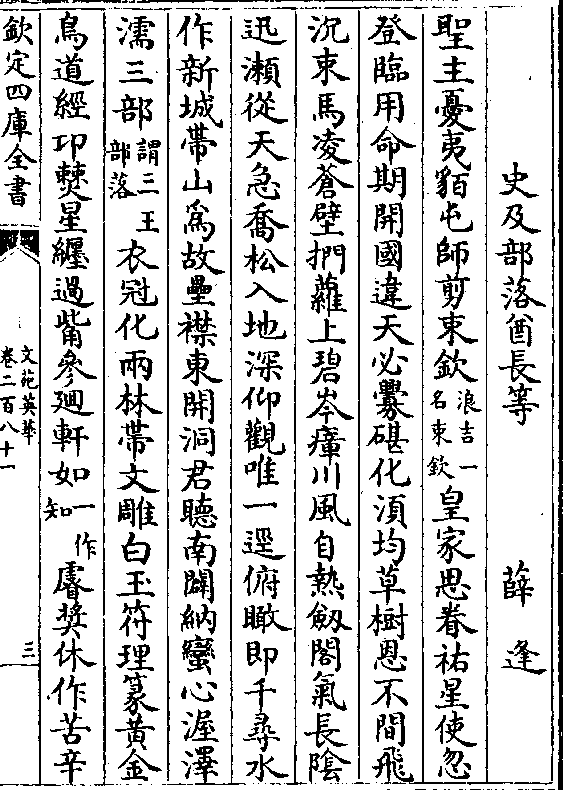 史及部落酋長等　薛逢
聖主憂夷貊屯師剪束欽浪吉一名束欽皇家思眷祐星使忽
登臨用命期開國違天必釁碪化湏均草樹恩不間飛
沉束馬凌蒼壁捫蘿上碧岑瘴川風自熱劔閣氣長陰
迅瀬從天急喬松入地深仰觀唯一逕俯瞰即千尋水
作新城帶山爲故壘襟東開洞君聴南闢納蠻心渥澤
濡三部謂三王部落衣冠化兩林帶文雕白玉符理篆黄金
鳥道經卭僰星纒過觜參廻軒如一作知睿奨休作苦辛
欽定四庫全書
文苑英華
卷二百八十一
三